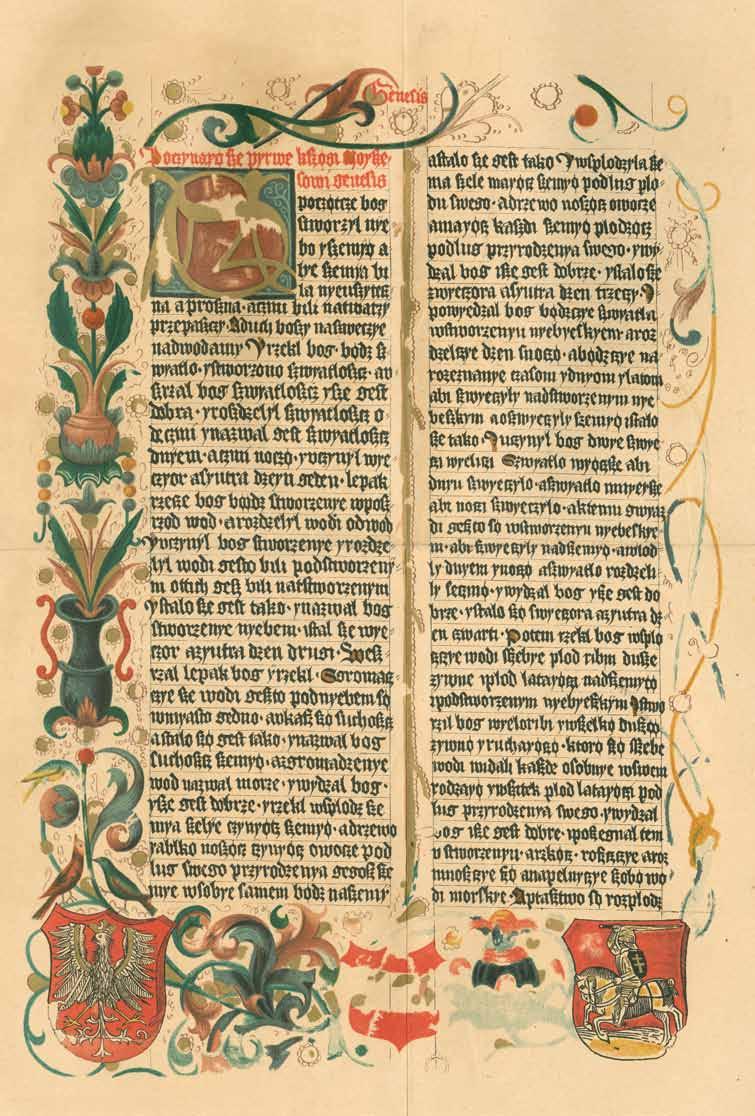 Genesis
Poczynaio sze pyrwe kszogi Moyze-
szowi genesis
Poczotcze bog
stworzyl nye
bo y szemyo a
le szemya bi
la nyeuszytecz
na a proszna · a czmi bili na twarzy
przepasczy · A duch boszy naswecye
nad wodamy Y rzekl bog · bodz sz
wyatlo · y stworzono szwyatloszcz · a v
szrzal bog szwyatloszcz ysze gest
dobra · y rosdzelyl szwyatloszcz o
de czmi y nazwal gest szwyatloszcz
dnyem · a czmi noczo · y vczynyl wye
czor a syutra dzeyn geden · lepak
rzecze bog bodz stworzenye w posz
rzod wod · a rozdzelyl wodi od wod
Y vczynyl bog stworzenye y rozdze
lyl wodi gesto bili pod stworzeny
m ot tich gesz bili nad stworzenym
y stalo sze gest tako · y nazwal bog
stworzenye nyebem · y stal sze wye
czor a zyutra dzen drugi · Wesz
rzal lepak bog y rzekl · Sgromacz
czye sze wodi geszto pod nyebem so
w myasto gedno · a vkasz szo suchoszcz
a stalo szo gest tako · y nazwal bog
suchoszcz szemyo · a zgromadzenye
wod nazwal morze · y wydzal bog ·
ysze gest dobrze · y rzekl wsplodz sze
mya szelye czynyocz szemyo · a drzewo
yablko noszocz czynyocz owocze pod
lug swego przyrodzenya gegosz sze
mye w sobye samem bodz na szemy
a stalo sze gest tako Y wsplodzyla sze
ma szele mayocz szemyo podlug plo
du swego · a drzewo noszocz owocze
a mayocz kaszdi szemyo plodzocz
podlug przyrodzenya swego · y wy
dzal bog isze gest dobrze · y stalo sze
z wyeczora a syutra dzen trzeczy · I
powyedzal bog bodzczye szwyatla
w stworzenyu nyebyeskyem · a roz
dzelczye dzen s noczo · a bodzczye na
rozeznanye czasom y dnyom y latom
abi szwyeczyly nad stworzenym nye
beszkym a oszwyeczyly szemyo i stalo
sze tako · I vczynyl bog dwye szwye
czi wyelici Szwyatlo wyoczsze abi
dnyu szwyeczylo · a szwyatlo mnyeysze
abi noczi szwyeczylo · a k temu gwyaz
di geszto so w stworzenyu nyebeskye
m · abi szwyeczyly nad szemyo · a wlod
ly dnyem y noczo a szwyatlo rozdzeli
ly se czmo · y wydzal bog ysze gest do
brze · y stalo szo s wyeczora a zyutra dz
en czwarti · Potem rzekl bog wsplo
dzczye wodi s szebye plod ribni dusze
zywne y plod latayoczi nad szemyo
pod stworzenym nyebyeszkym I stwo
rzil bog wyeloribi y wszelko duszo
zywno y ruchayoczo · ktoro szo s szebe
wodi widali kaszde osobnye w swem
rodzayo y wszitek plod latayoczi pod
lug przyrodzenya swego · y wydzal
bog isze gest dobre · i poszegnal tem
v stworzenyu · a rzkocz · roszczczye a roz
mnoszczye szo a napelnyczye szobo wo
di morskye · A ptasztwo so rozplodz